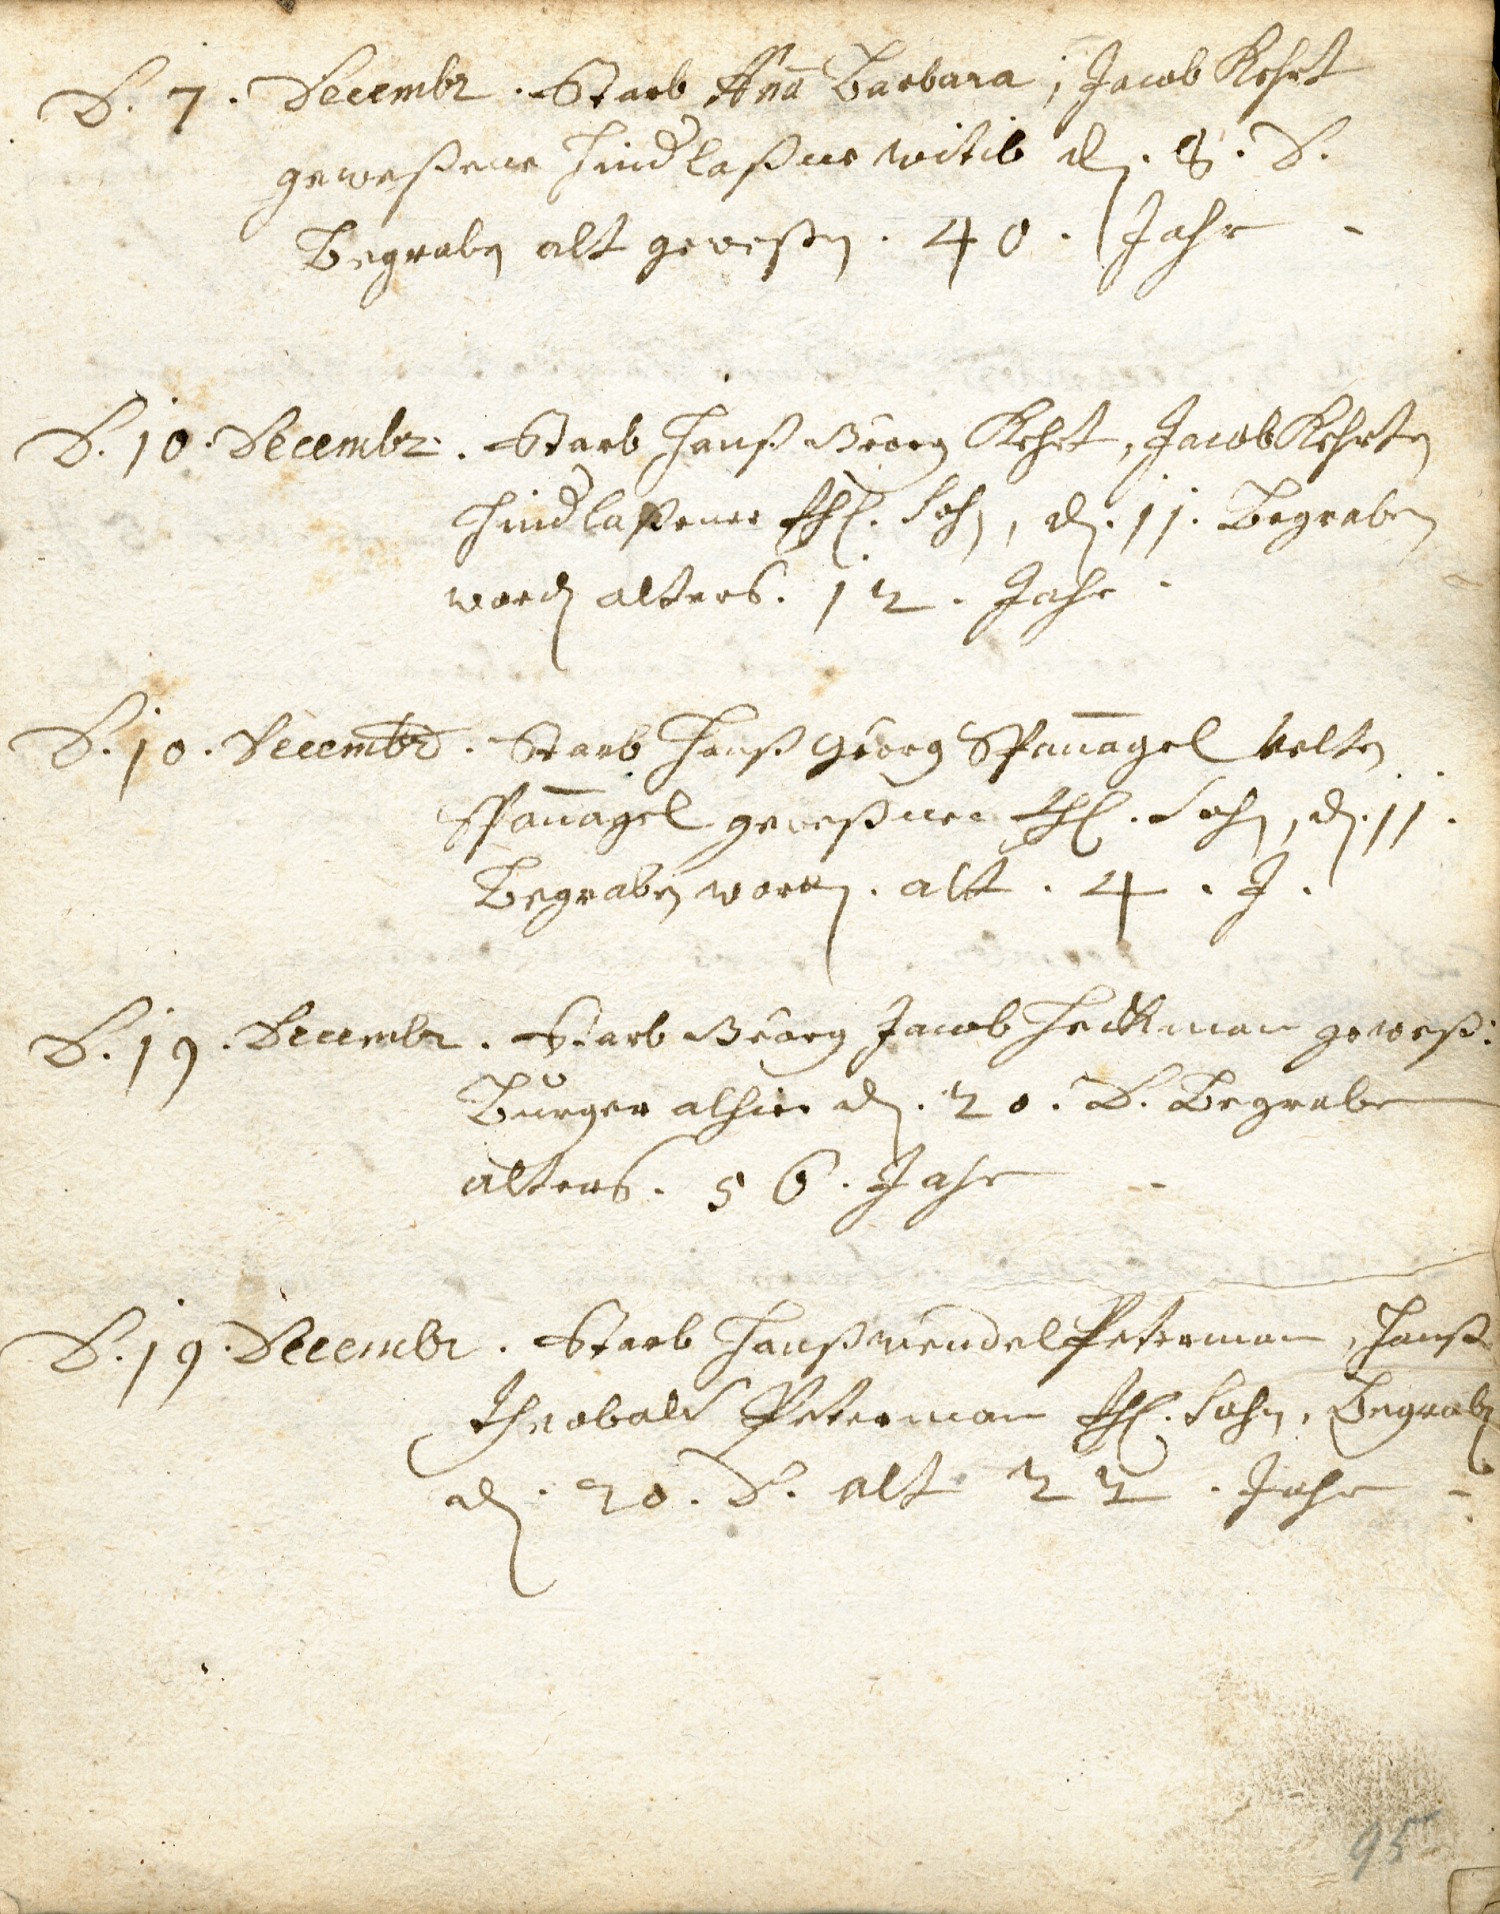 D. 7. Decembr. Starb Aña Barbara, Jacob Kehrt
geweßene hind laßne witib d. 8. D.
Begrabn alt geweßn. 40. Jahr
D. 10. Decembr. Starb Hanß Georg Kehrt, Jacob Kehrtn
hindlaßener Ehl. Sohn, d. 11. Begraben
word alters. 12. Jahr
D. 10. Decembr. Starb Hanß Georg Spañagel Velten
Spañagel geweßner Ehl. Sohn, d. 11.
Begraben worden. alt. 4. J.
D. 19. Decembr. Starb Georg Jacob Heckman geweß:
Burger alhier d. 20. D. Begraben
alters. 56. Jahr
D. 19. Decembr. Starb Hanß wendel Peterman, Hanß
Theobald Peterman Ehl. Sohn, Begrabn
d. 20. D. alt 22. Jahr
95